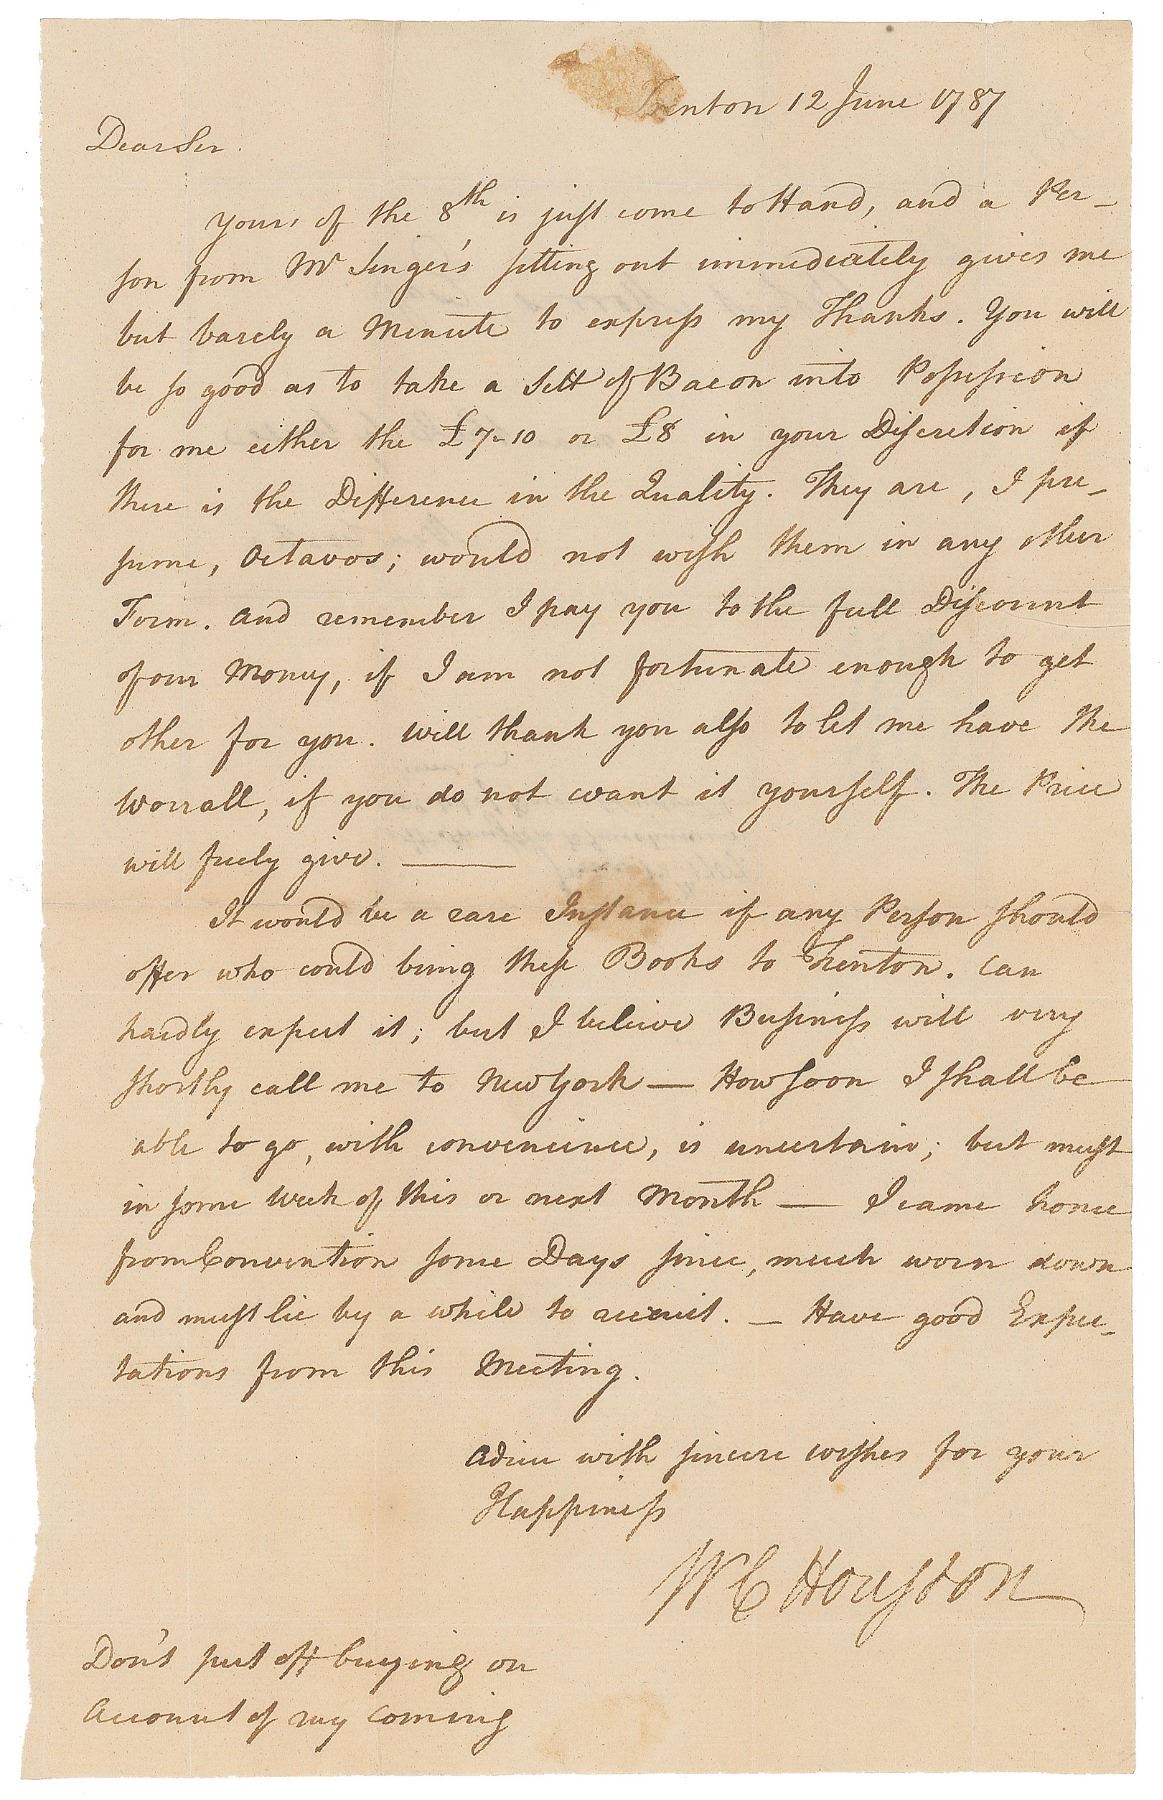 Trenton 12 June 1787
Dear Sir.
Yours of the 8th is just come to Hand, and a Per-
son from Mr Singer's sitting out immediately gives me
but barely a Minute to express my Thanks. You will
be so good as to take a Sett of Bacon into Possession
for me either the £7-10 or £8 in your Discretion if
there is the Difference in the Quality. They are, I pre-
sume, Octavos; would not wish them in any other
Form. And remember I pay you to the full Discount
of our Money, if I am not fortunate enough to get
other for you. Will thank you also to let me have the
Worrall, if you do not want it yourself. The Price
will freely give. ——
It would be a rare Instance if any Person should
offer who could bring these Books to Trenton. Can
hardly expect it; but I believe Business will very
shortly call me to New York — How soon I shall be
able to go, with convenience, is uncertain; but must
in some Week of this or next Month — I came home
from Convention some Days since, much worn down
and must lie by a while to recruit. — Have good Expec-
tations from this Meeting.
Adieu with sincere wishes for your
Happiness
WC Houston
Don't put off buying on
Account of my coming